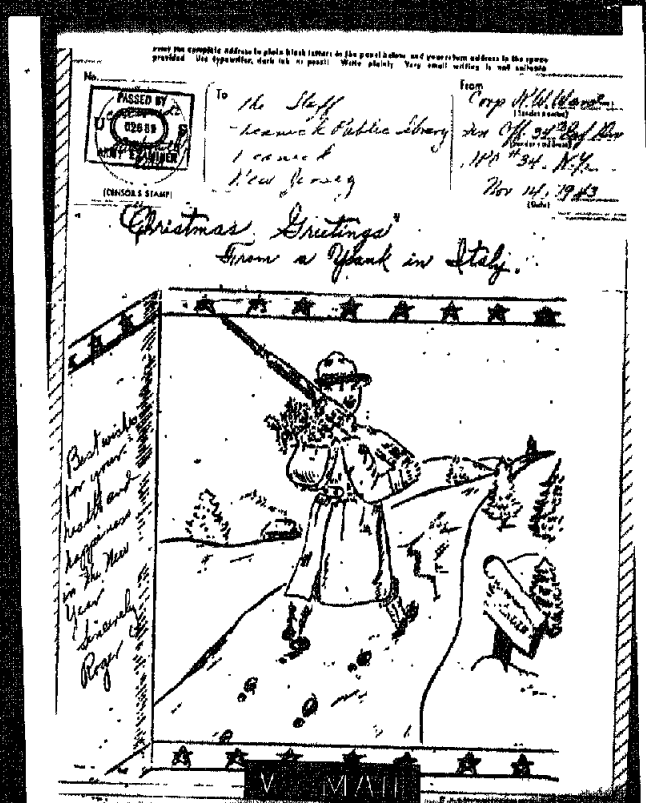 Print the complete address in plain block letters in the panel below, and your return address in the space
provided. Use typewriter, dark ink, or pencil. Write plainly. Very small writing is not suitable.
No.
PASSED BY
U S
02689
ARMY EXAMINER
(CENSOR'S STAMP)
To
The Staff
Teaneck Public Library
Teaneck
New Jersey
From
Corp
(Sender's name)
Fin Off. 34th
(Sender's address)
APO #34, N.Y.
Nov 14, 1943
(Date)
"Christmas Greetings"
From a Yank in Italy.
Best wishes
for your
health and
happiness
in the New
Year
Sincerely
Roger
V - MAIL